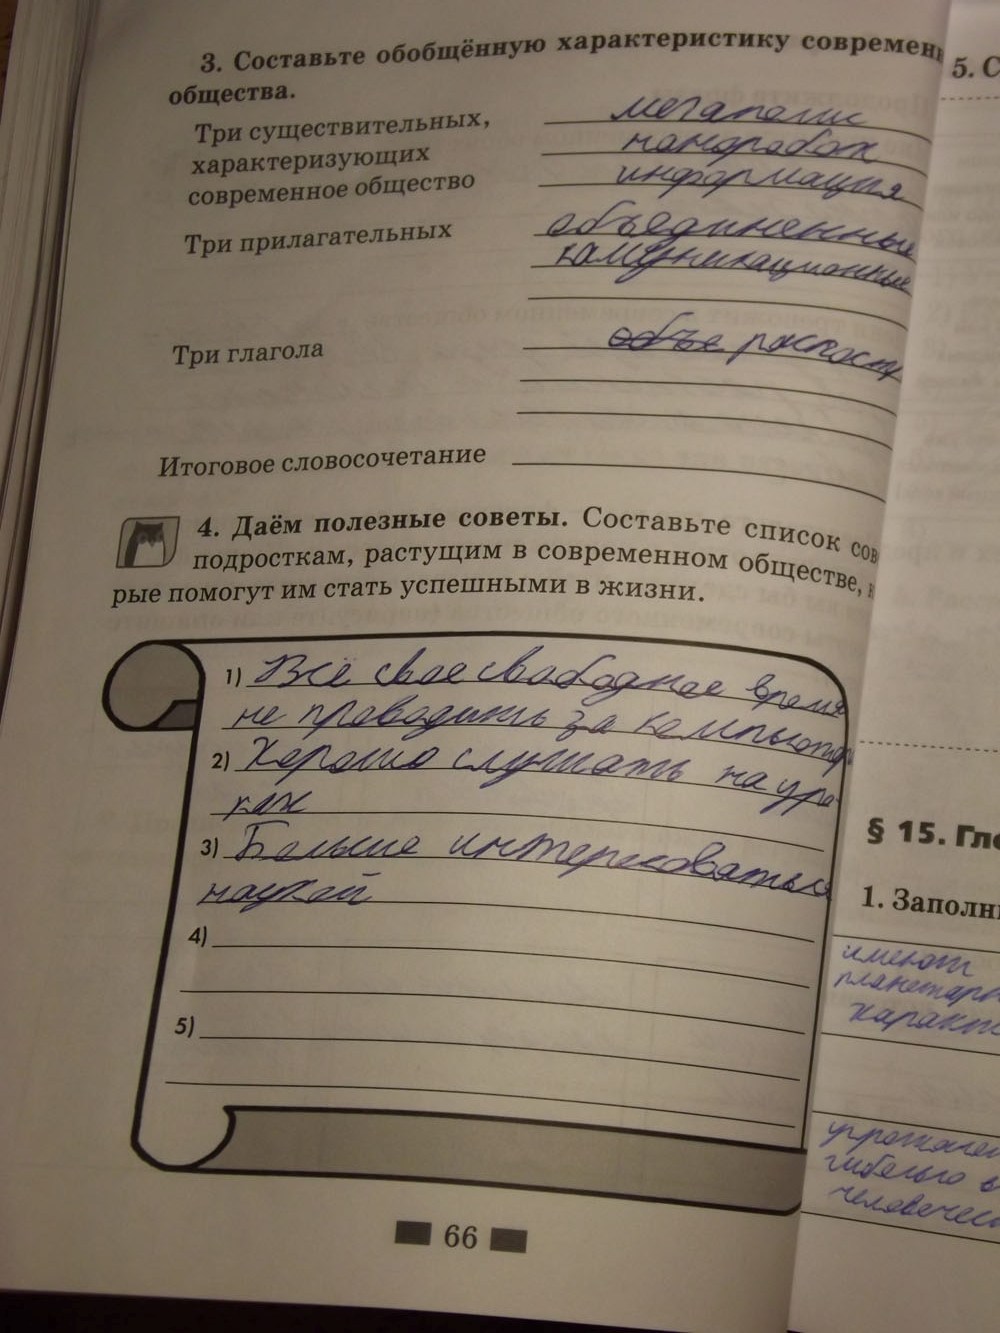 3. Составьте обобщённую характеристику современ
общества.
Три существительных,
характеризующих
современное общество
мегаполис
информация
Три прилагательных
объединенные
коммуникационные
Три глагола
объе
Итоговое словосочетание
4. Даём полезные советы. Составьте список сов
подросткам, растущим в современном обществе, к
рые помогут им стать успешными в жизни.
1) Всё свое свободное время
не проводить за компьютер
2) Хорошо слушать на уро
ках
3) Больше интересоваться
наукой
4)
5)
66
5. С
§ 15. Гло
1. Заполни
имеют
планетарн
характе
гибелью в
человечес